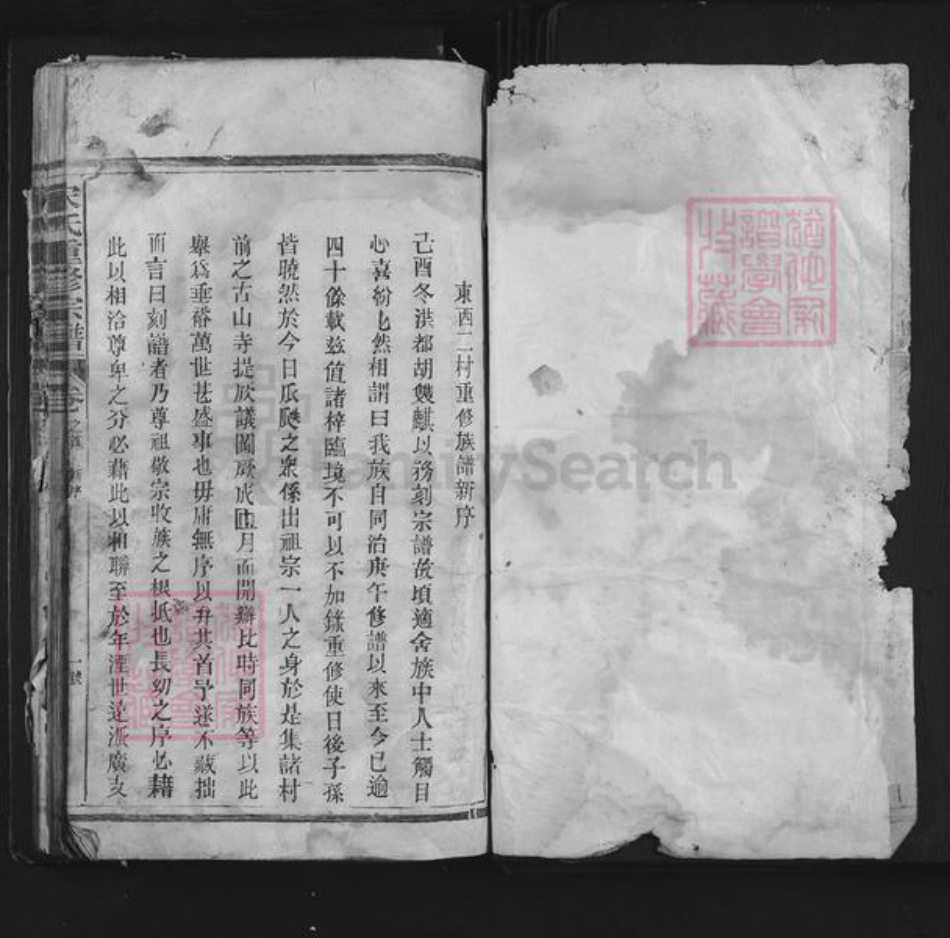 東西二村重修族譜新序
己酉冬洪都胡雙麒以務刻宗譜故頃適舍族中人士觸目
心喜紛比然相謂曰我族自同治庚午修譜以來至今已逾
四十餘載茲值諸梓臨境不可以不加錄重修使日後子孫
皆曉然於今日瓜瓞之衆係出祖宗一人之身於是集諸村
前之古山寺提欣議闔族成 月而開辦比時同族等以此
舉爲垂裕萬世甚盛事也毋庸無序以弁其首予遂不藏拙
而言曰刻譜者乃尊祖敬宗收族之根抵也長幼之序必藉
此以相洽尊卑之分必藉此以相聯至於年湮世遠漸廣支
宋氏重修宗譜 卷之首 新序 一
譜學會
收藏
FamilySearch